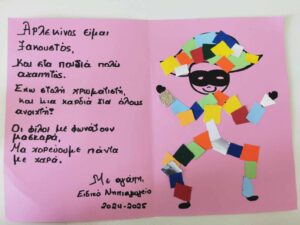 Αρλεκίνος είμαι
ξακουστός,
Και στα παιδιά πολύ
αγαπητός.
Έχω στολή χρωματιστή,
και μια καρδιά για όλους
ανοιχτή!
Οι φίλοι με φωνάζουν
μασκαρά,
Να χορεύουμε πάντα
με χαρά.
Με αγάπη,
Ειδικό Νηπιαγωγείο
2024-2025